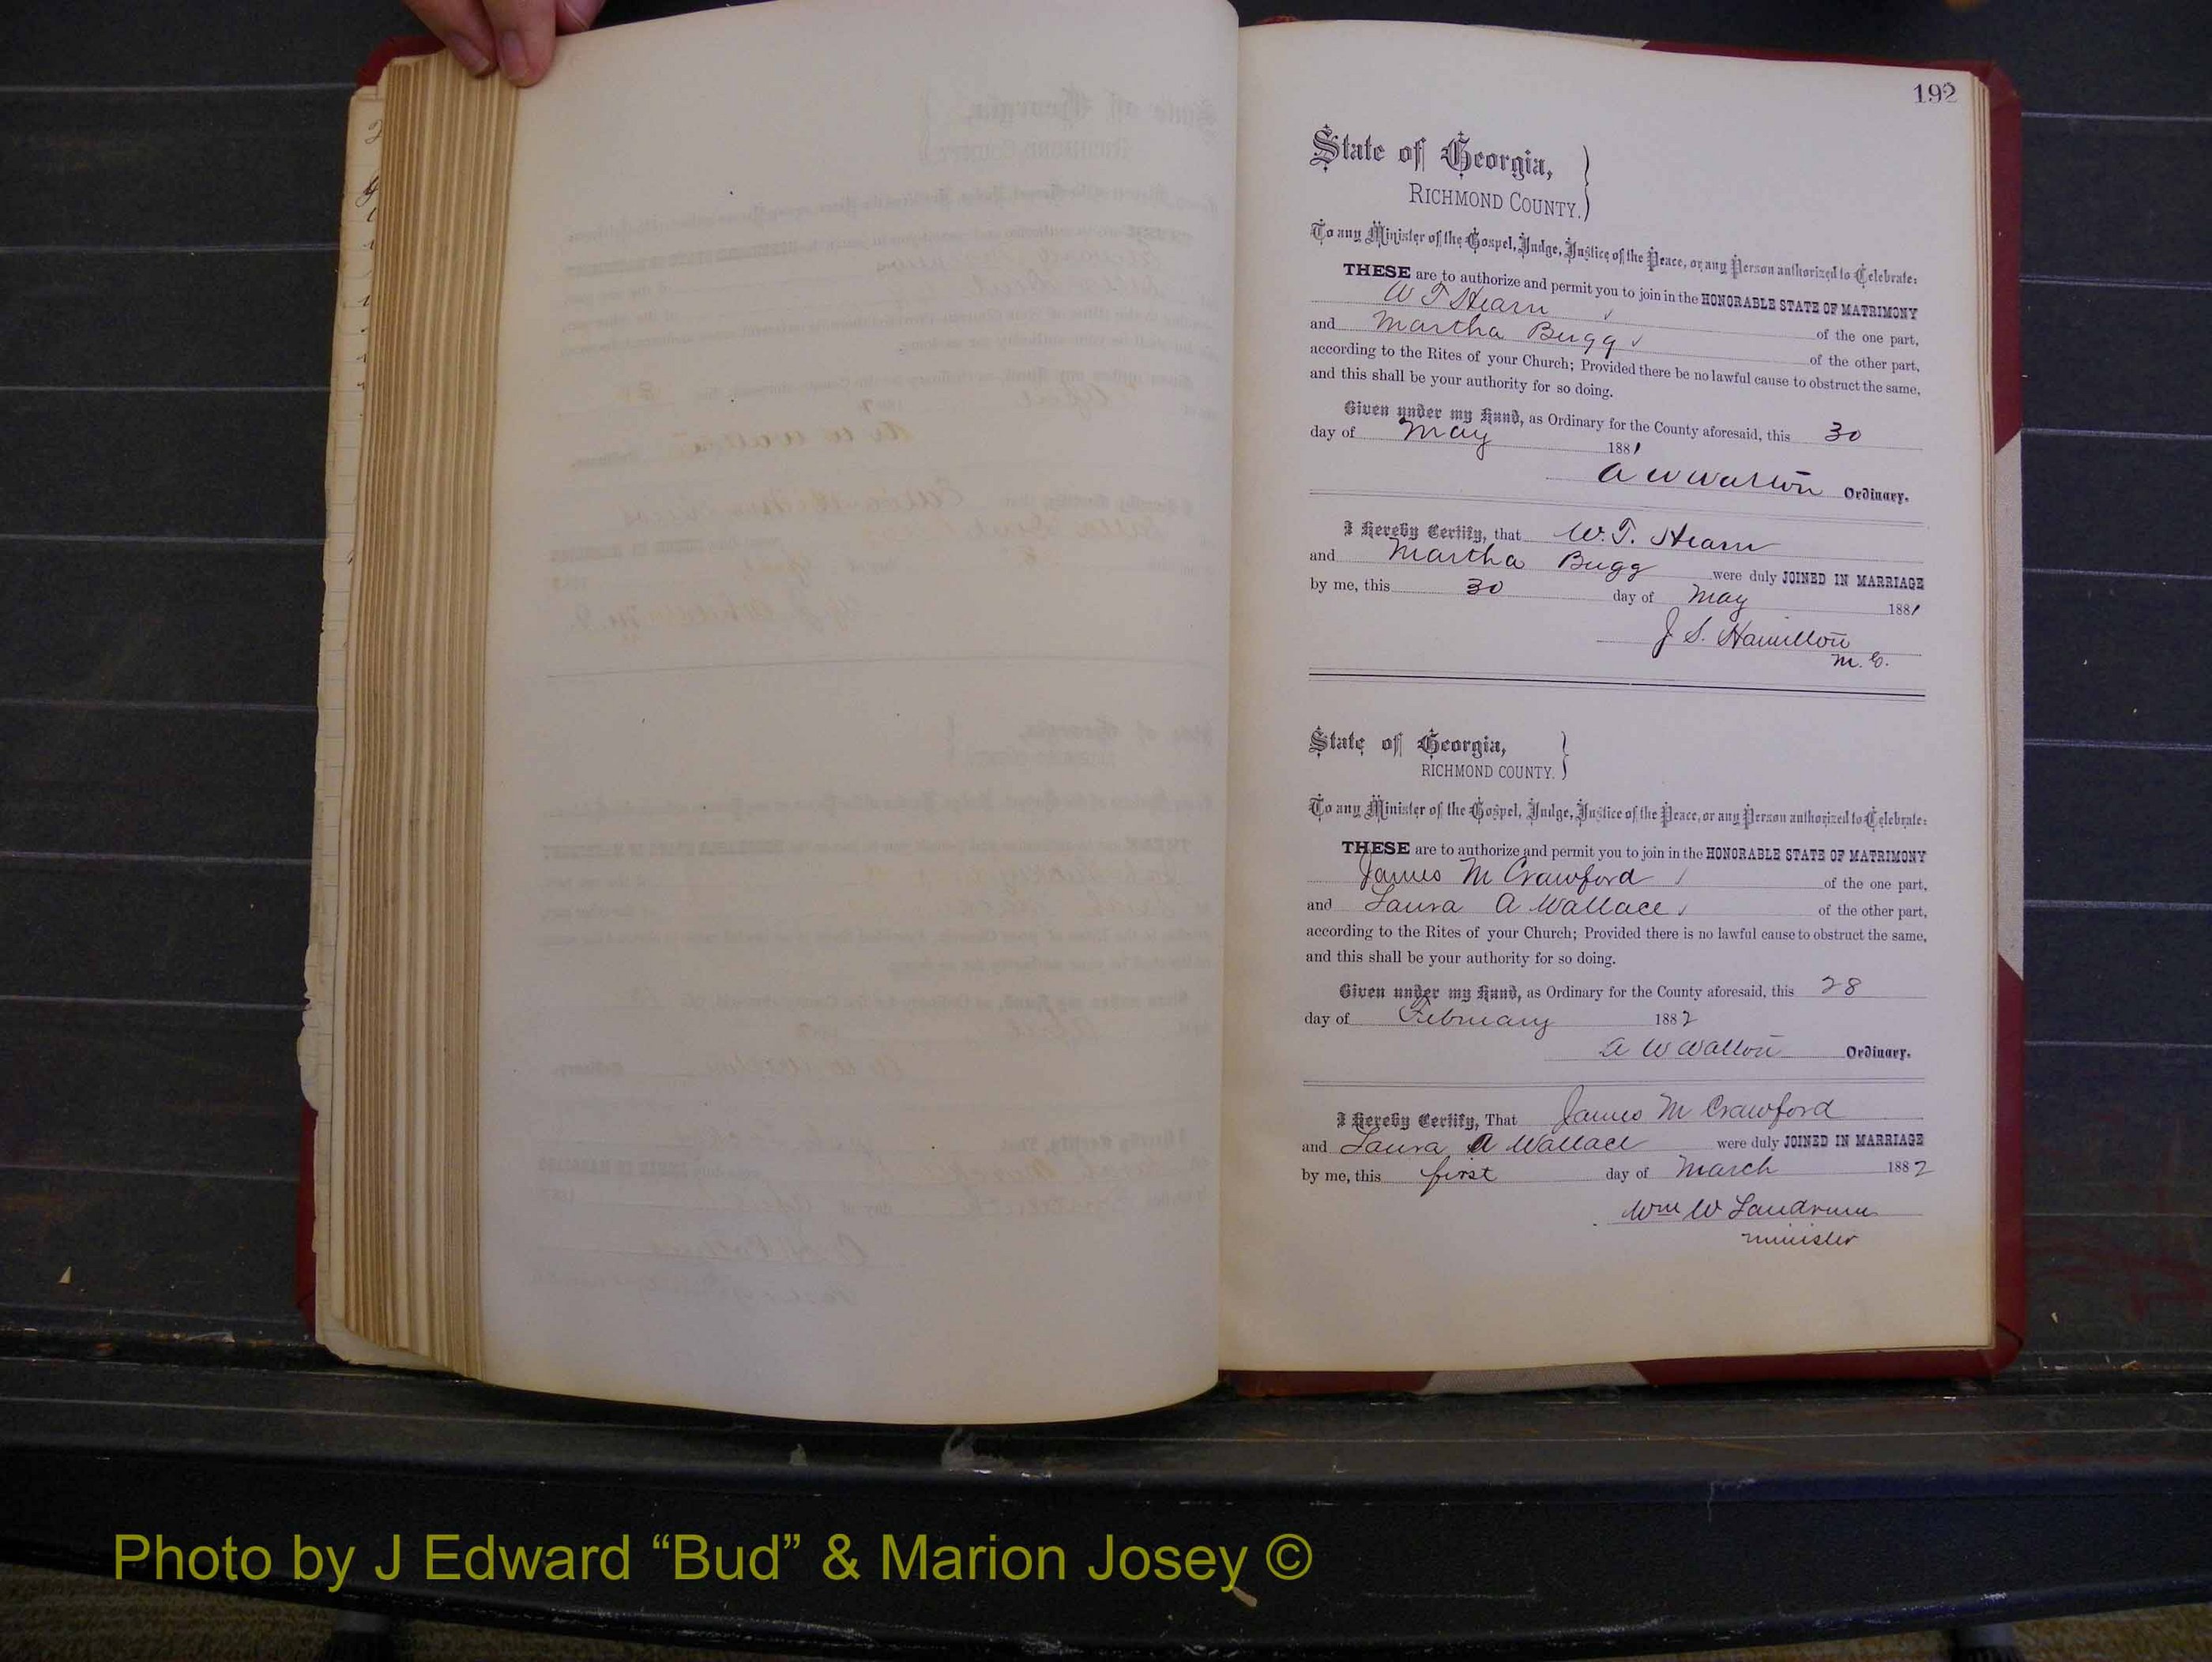 192
State of Georgia,
RICHMOND COUNTY.
To any Minister of the Gospel, Judge, Justice of the Peace, or any Person authorized to Celebrate:
THESE are to authorize and permit you to join in the HONORABLE STATE OF MATRIMONY
W T Hearn of the one part,
and Martha Bugg of the other part,
according to the Rites of your Church; Provided there be no lawful cause to obstruct the same,
and this shall be your authority for so doing.
Given under my Hand, as Ordinary for the County aforesaid, this 30
day of May 1881
A W Walton Ordinary.
I Hereby Certify, that W. T. Hearn
and Martha Bugg were duly JOINED IN MARRIAGE
by me, this 30 day of May 1881
J S. Hamilton
State of Georgia,
RICHMOND COUNTY.
To any Minister of the Gospel, Judge, Justice of the Peace, or any Person authorized to Celebrate:
THESE are to authorize and permit you to join in the HONORABLE STATE OF MATRIMONY
James M Crawford of the one part,
and Laura A Wallace of the other part,
according to the Rites of your Church; Provided there is no lawful cause to obstruct the same,
and this shall be your authority for so doing.
Given under my Hand, as Ordinary for the County aforesaid, this 28
day of February 1882
A W Walton Ordinary.
I Hereby Certify, That James M Crawford
and Laura A Wallace were duly JOINED IN MARRIAGE
by me, this first day of March 1882
Wm W Landrum
minister
Photo by J Edward “Bud” & Marion Josey ©